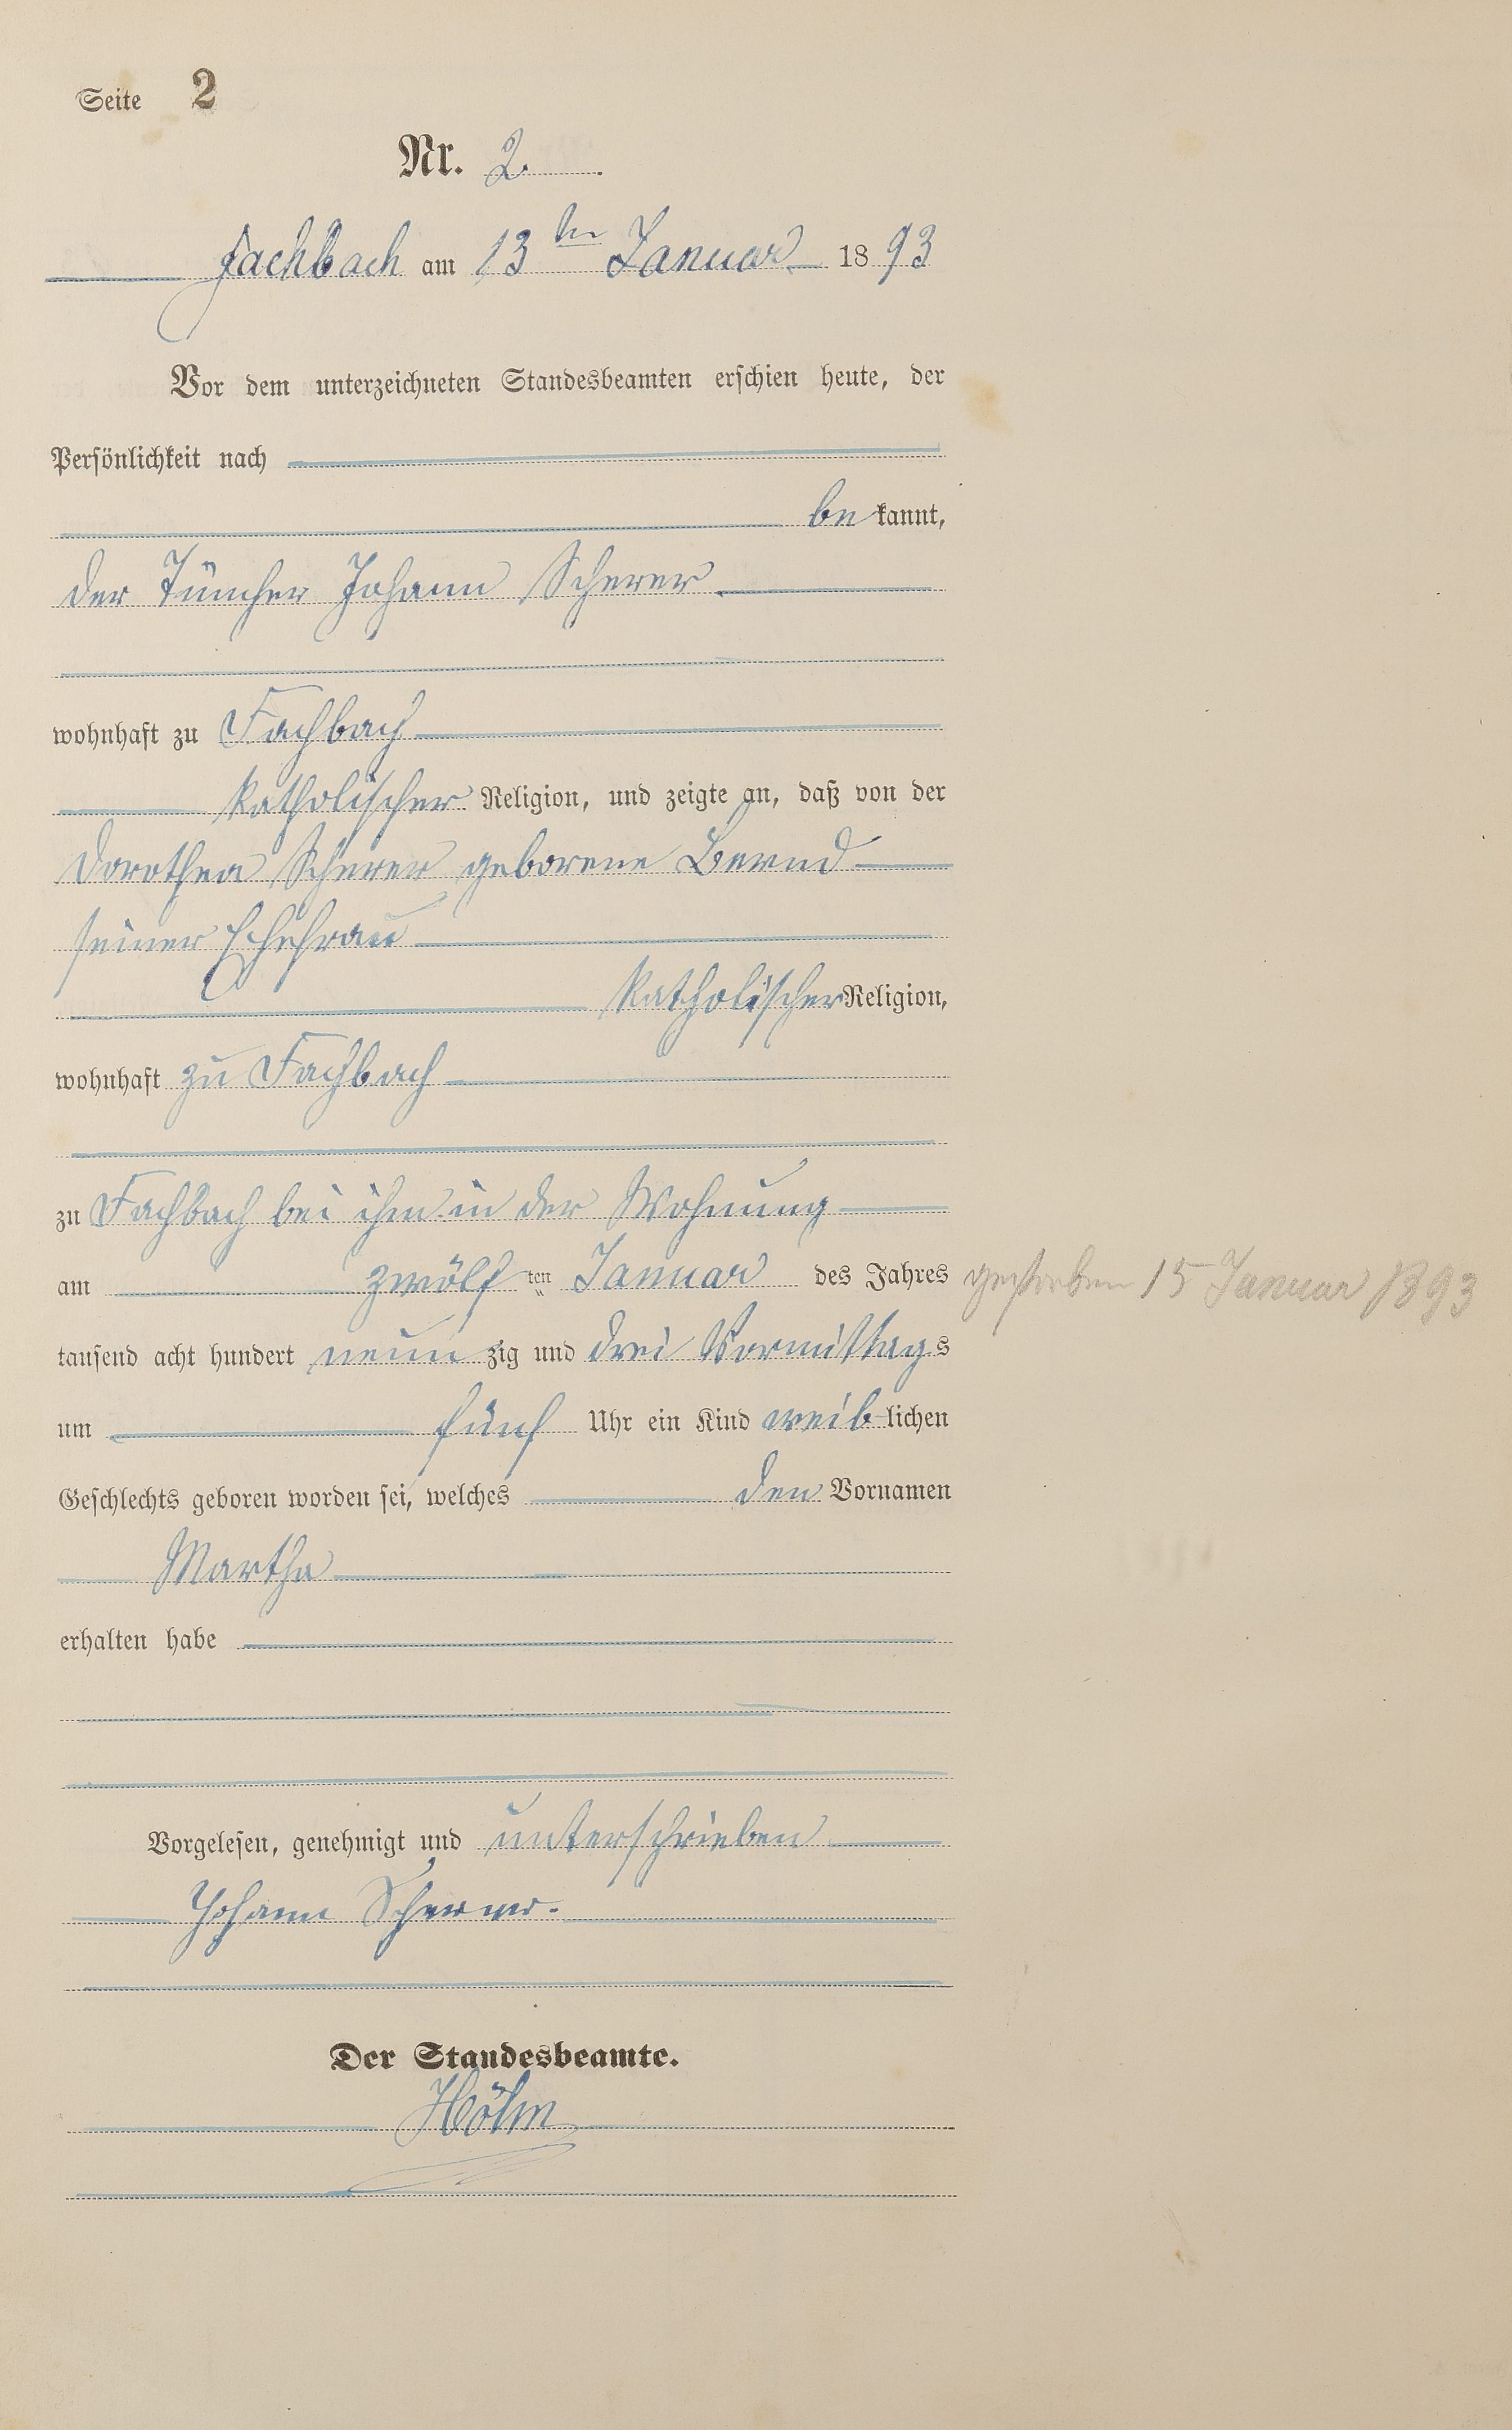 Seite 2
Nr. 2.
Fachbach am 13ten Januar 1893
Vor dem unterzeichneten Standesbeamten erschien heute, der
Persönlichkeit nach
be kannt,
der Tüncher Johann Scherer
wohnhaft zu Fachbach
katholischer Religion, und zeigte an, daß von der
Dorothea Scherer geborene Bernd
seiner Ehefrau
katholischer Religion,
wohnhaft zu Fachbach
zu Fachbach bei ihm in der Wohnung
am zwölf ten Januar des Jahres
gestorben 15 Januar 1893
tausend acht hundert neun zig und drei Vormittags
um fünf Uhr ein Kind weib lichen
Geschlechts geboren worden sei, welches den Vornamen
Martha
erhalten habe
Vorgelesen, genehmigt und unterschrieben
Johann Scherer.
Der Standesbeamte.